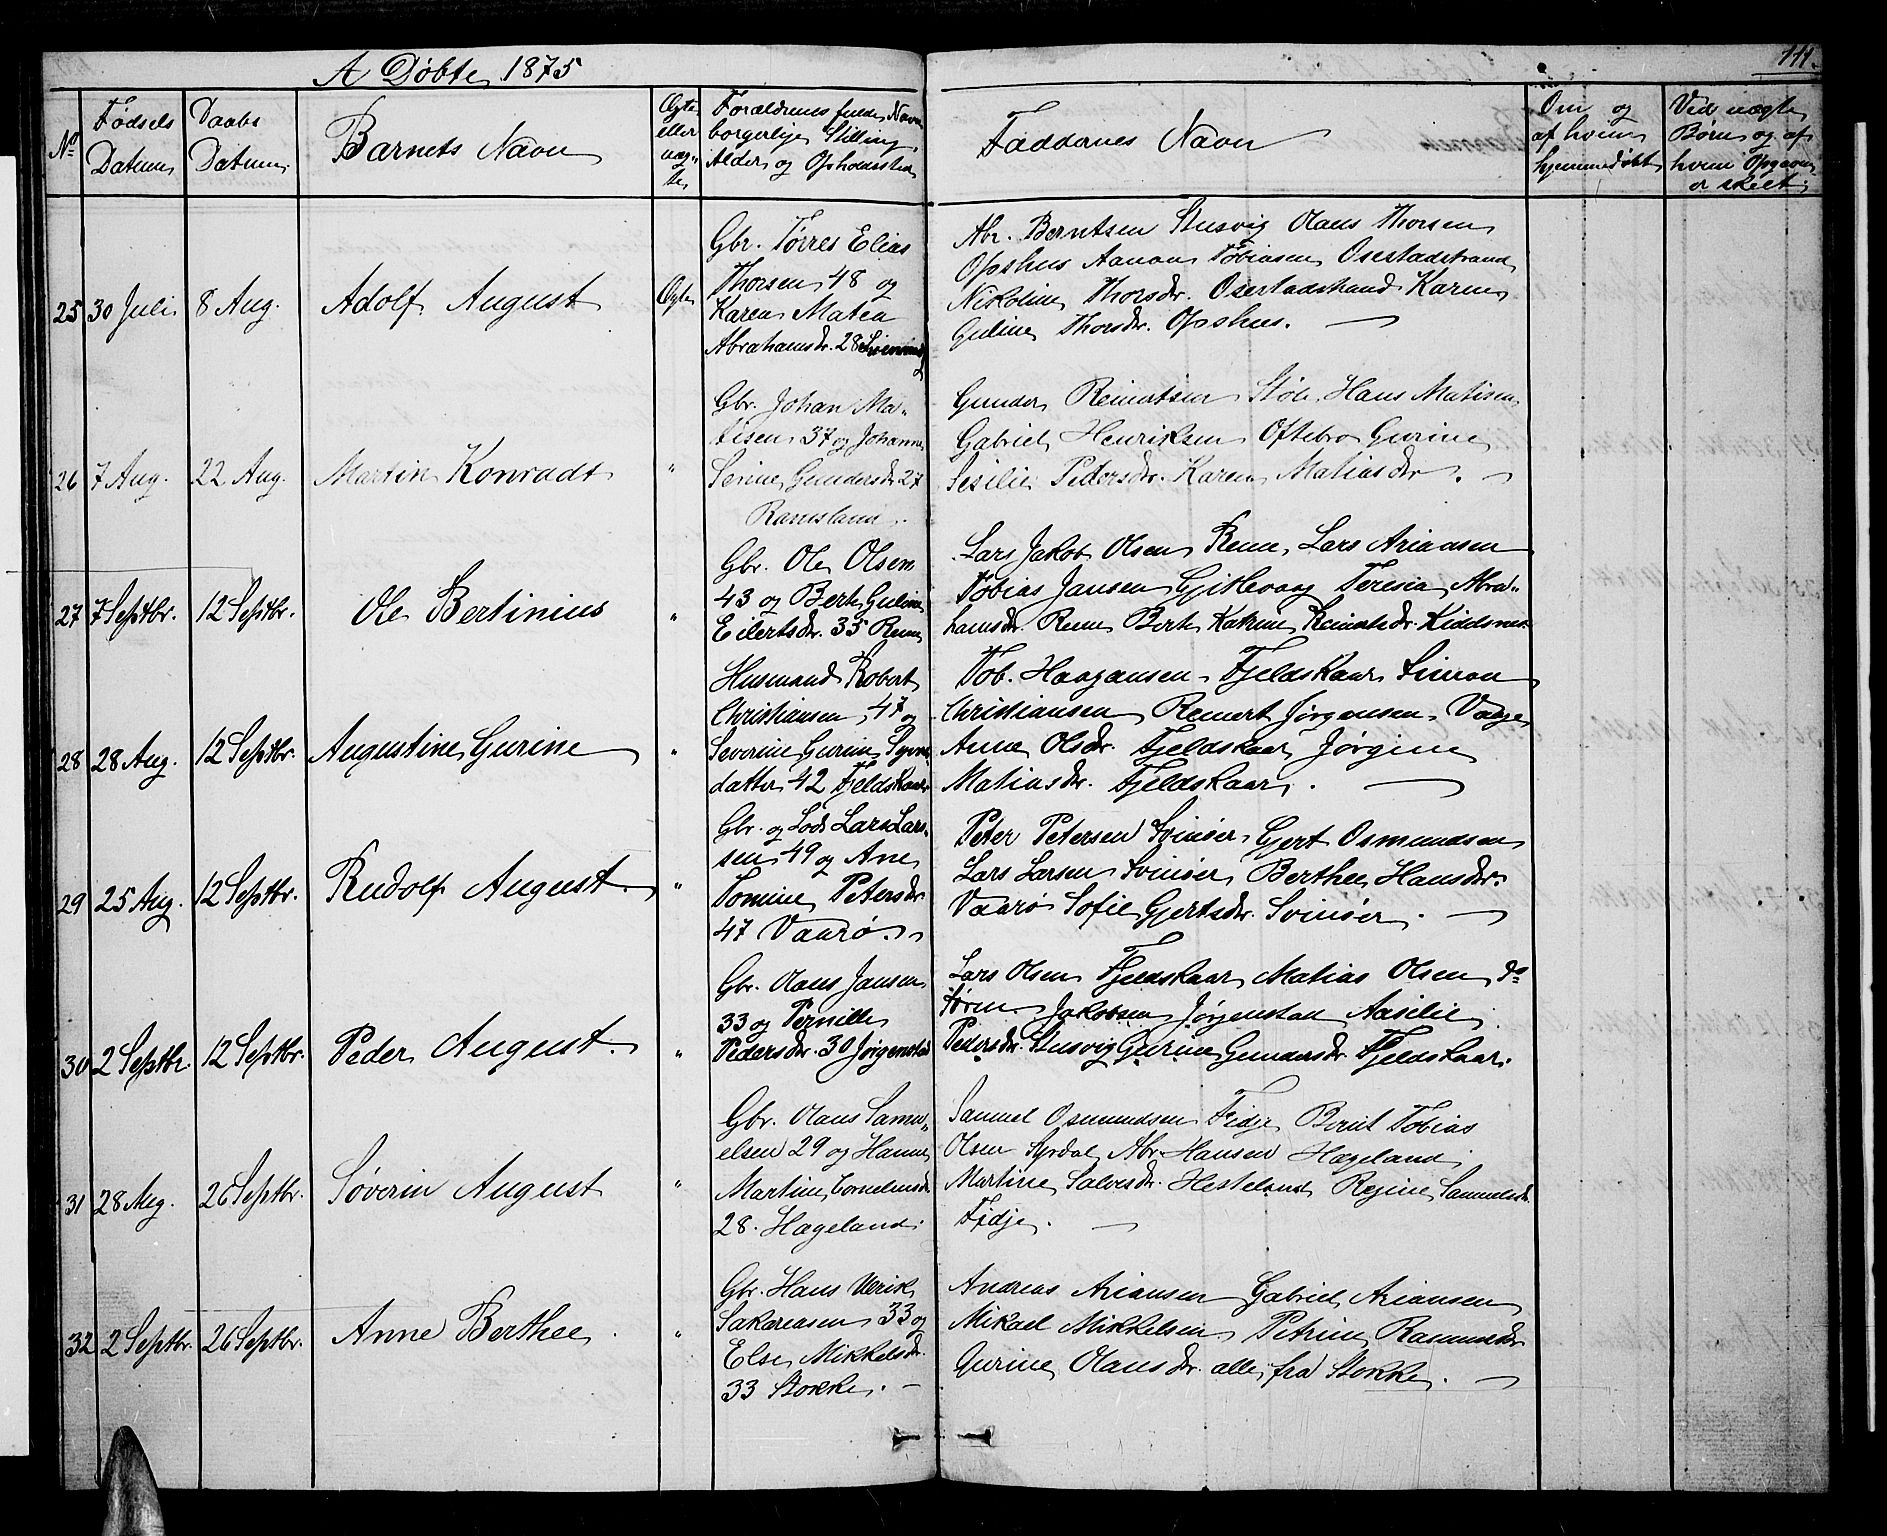 A Døbte 1875
111.
No
Fødsels Datum
Daabs Datum
Barnets Navn
Ægte eller uægte
Forældrenes fulde Navn borgerlige Stilling, Alder og Opholdssted
Faddernes Navn
Om og af hvem hjemmedøbt
Ved uægte Børn og af hvem Opgaven er skeet.
25 30 Juli 8 Aug. Adolf August Ægte
Gbr. Tørres Elias
Thorsen 48 og
Karen Matea
Abrahamsdr. 28
Abr. Berntsen Stusvig Olaus Thorsen
Opshus Aanon Tobiasen Osestadstrand
Nikoline Thorsdr. Osestadstrand Karen
Guline Thorsdr. Opshus. —
26 7 Aug. 22 Aug. Martin Konradt "
Gbr. Johan Ma-
tisen 37 og Johanne
Serine Gundersdr 27
Ramsland.
Gunder Reinertsen Støle, Hans Matisen
Gabriel Henriksen Oftebro Gurine
Sesilie Pedersdr. Karen Matiasdr. —
27 7 Septbr. 12 Septbr. Ole Bertinius "
Gbr. Ole Olsen
43 og Berte Guline
Eilertsdr. 35 Reme
Lars Jakob Olsen Reme, Lars Ariansen
Tobias Jansen Gitlevaag Teresia Abra-
hamsdr. Reme Berte Katrine Reinertsdr.
28 28 Aug. 12 Septbr. Augustine Gurine "
Husmand Robert
Christiansen 47 og
Severine Gurine Syvers
datter 42 Fjeldskaar
Tob. Haagansen Fjeldskaar Simon
Christiansen Reinert Jørgensen Vaage
Anne Olsdr. Fjeldskaar Jørgine
Matiasdr. Fjeldskaar. —
29 25 Aug. 12 Septbr. Rudolf August. "
Gbr. og Lods Lars Lar-
sen 49 og Ane
Tomine Petersdr.
47 Vaarø.
Peter Petersen Svinøer, Gjert Osmundsen
Lars Larsen Svinøer, Berthe Hansdr.
Vaarø Sofie Gjertsdr. Svinøer. —
30 2 Septbr. 12 Septbr. Peder August. "
Gbr. Olaus Jansen
33 og Pernille
Pedersdr. 30 Jørgenstad
Lars Olsen Fjeldskaar Matias Olsen do
Søren Jakobsen Jørgenstad Aasilie
Pedersdr. Stusvig Gurine Gundersdr. Fjeldskaar.
31 28 Aug. 26 Septbr. Søverin August "
Gbr. Olaus Samu-
elsen 29 og Hanne
Martine Corneliusdr.
28. Hægeland.
Samuel Osmundsen Fidje Bernt Tobias
Olsen Syrdal Abr. Hansen Hægeland
Martine Salvesdr. Hesteland Regine Samuelsdr.
Fidje. —
32 2 Septbr. 26 Septbr. Anne Berthee "
Gbr. Hans Ulrik
Sakareasen 33 og
Else Mikkelsdr.
33 Stokke. —
Andreas Ariansen Gabriel Ariansen
Mikael Mikkelsen Petrine Rasmusdr
Gurine Olausdr. alle fra Stokke. —